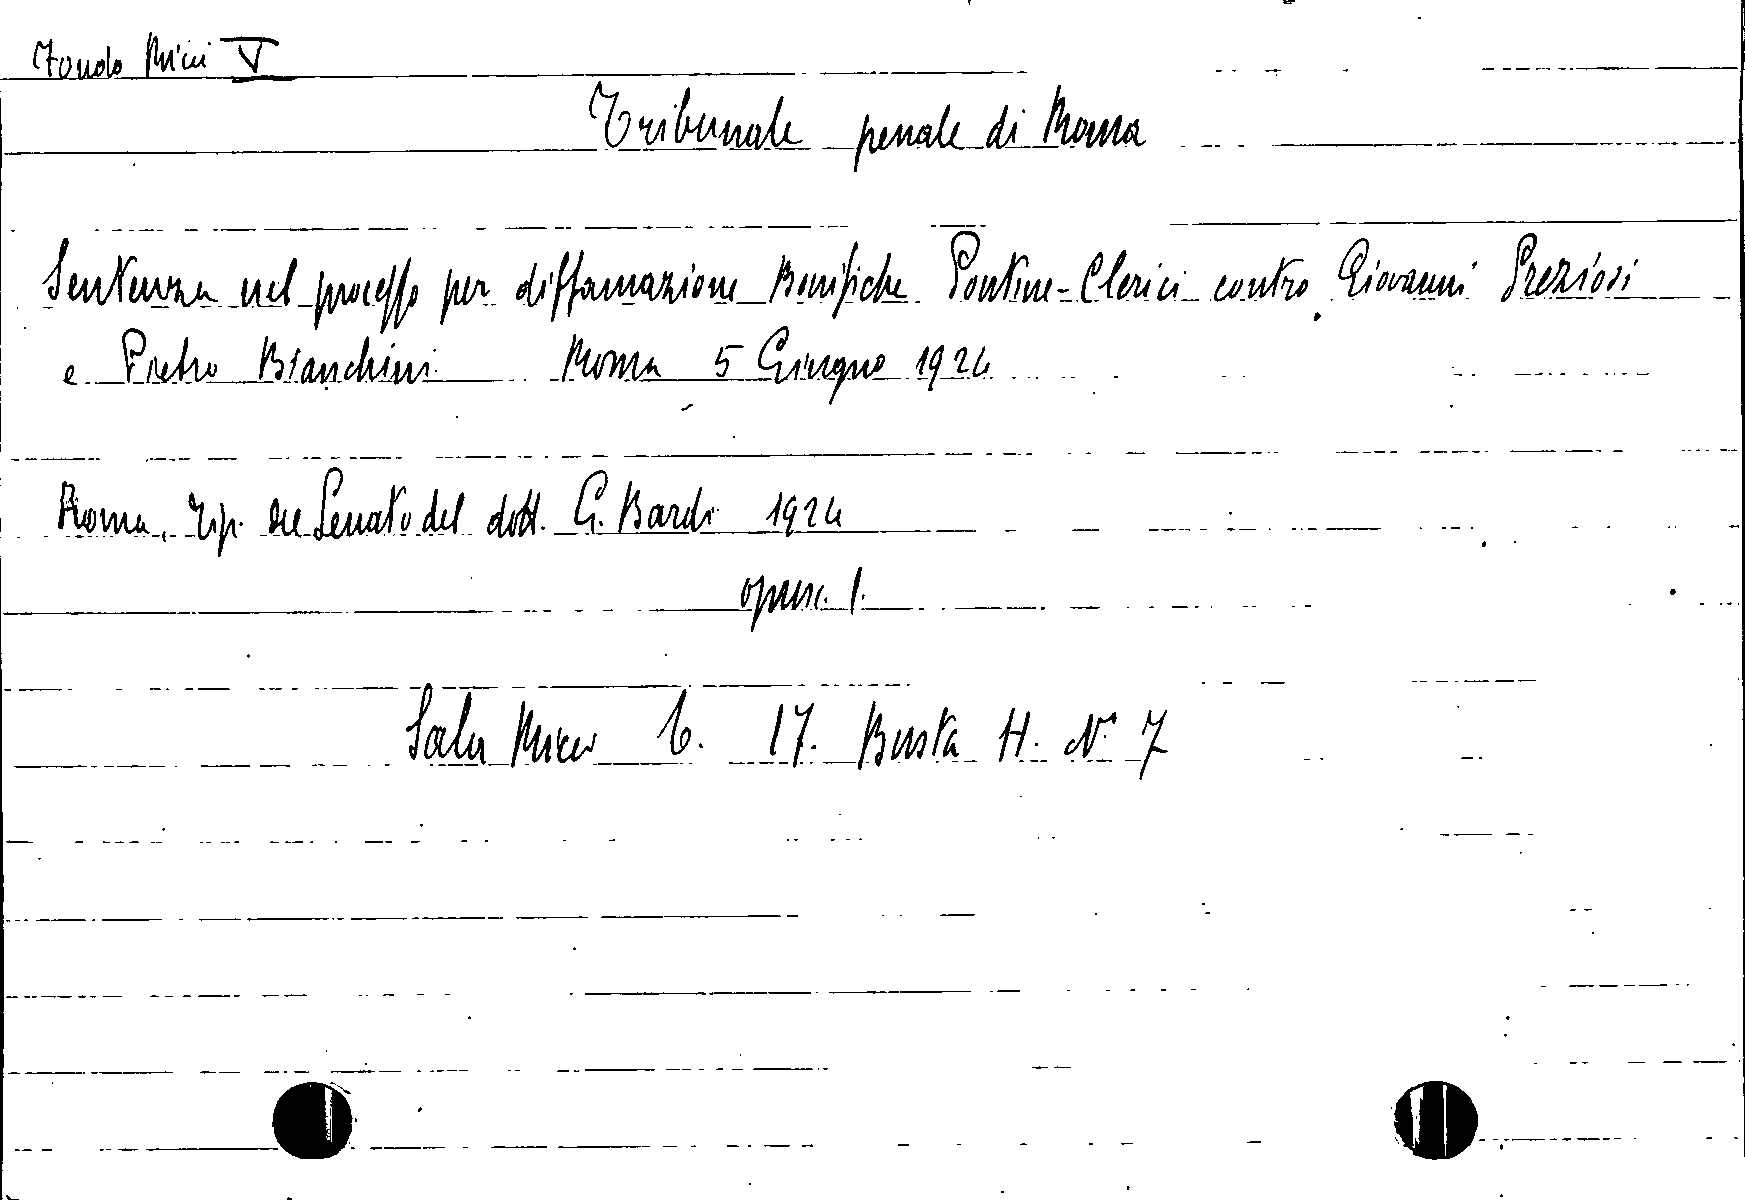 Fondo Ricci V
Tribunale penale di Roma
Sentenza nel processo per diffamazione Bonifiche Pontine-Clerici contro Giovanni Preziosi
e Pietro Bianchini Roma 5 Giugno 1924
Roma, Tip. del Senato del dott. G. Bardi 1924
opusc. 1.
Sala Ricci 6. 17. Busta H. N° 7